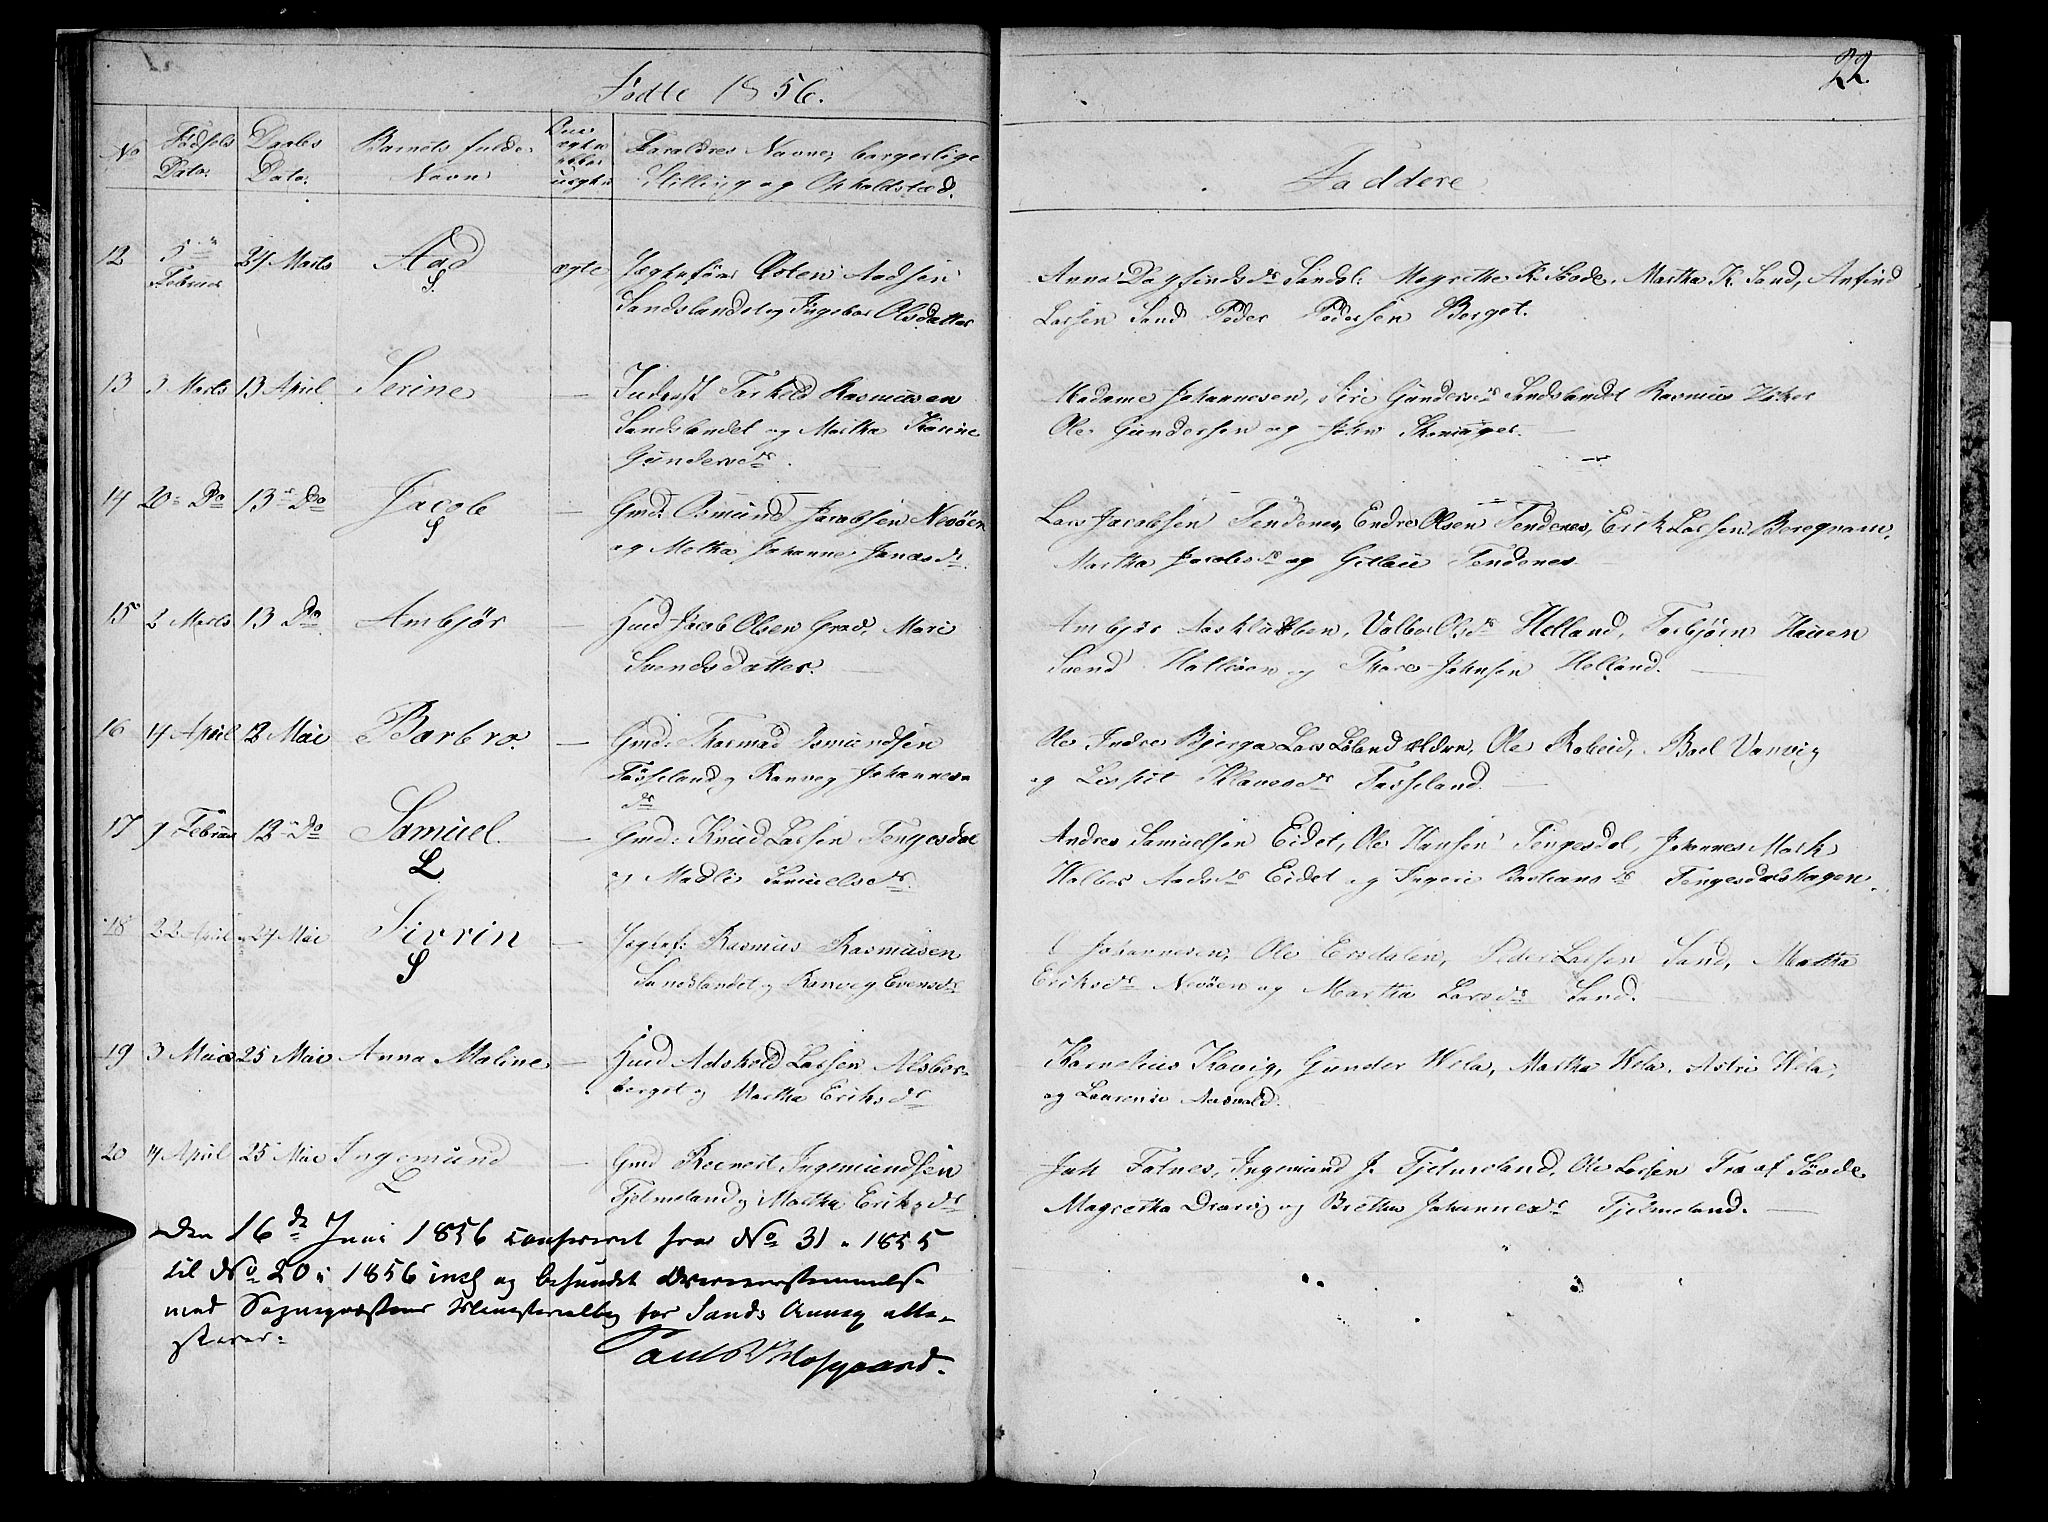 22.
Fødte 1856.
No
Fødsels Dato.
Daabs Dato.
Barnets fulde Navn
Om ægte eller uægte
Foraldres Navne, borgerlige Stilling og Opholdsted.
Faddere
12 5te Februar 24 Marts Aad S. ægte Østen Aadsen
Sandslandet og Ingebor Olsdatter
Anna Dagfindsdr Sandsl. Magrethe K. Bode, Martha K. Sand, Anfind
Larsen Sand Peder Pedersen Berget.
13 3 Marts 13 April Serine — Inderst Torkild Rasmusen
Sandslandet og Martha Karine
Gundersdr.
Madame Johannesen, Siri Gundersdr Sandslandet Rasmus
Ole Gundersen og John
14 20de Do 13de Do Jacob S — Gmd. Osmund Jacobsen Nesøen
og Metha Johanne Jonasdr.
Lars Jacobsen Tendenes, Endre Olsen Tendenes, Erik Larsen Bergqvam,
Martha Jacobsdr og Tendenes
15 2 Marts 13 Do Ambjør — Hmd Jacob Olsen Grad, Mari
Svendsdatter.
Ambjør Valbor Olsdr Helland, Torbjørn Hauen
Svend og Thore Johnsen Helland.
16 4 April 12 Mai Barbro. — Gmd: Thormod Osmundsen
Fosseland og Ranveg Johannes-
dr
Ole Indre Bjerga Lars Løland Ole Røheid, Boel Vanvig
og Lisbet Klavesdr Fosseland.
17 9 Februar 12te Do Samuel. L. — Gmd: Knud Larsen Tengesdal
og Madli Samuelsdr.
Andres Samuelsen Eidet, Ole Hansen Tengesdal, Johannes Mork
Valbor Aadsdr Eidet og Ingeri dr Tengesdalshagen.
18 22 April 24 Mai Sivrin S — Rasmus Rasmusen
Sandslandet og Ranveg Evensdr
Johannesen, Ole Peder Larsen Sand, Martha
Eriksdr Nesøen og Martha Larsdr Sand.
19 3 Mai 25 Mai Anna Maline — Hmd Larsen
berget og Martha Eriksdr
Kornelius Gunder Wela, Martha Wela, Astri Wela,
og
20 14 April 25 Mai Ingemund L — Gmd Reinert Ingemundsen
Tjelmeland og Martha Eriksdr
Joh Totnes, Ingemund J. Tjelmeland, Ole Larsen Træ af Søvde
Magretha og Johannesdr Tjelmeland.
Den 16de Juni 1856 confereret fra No 31 - 1855
til No 20 i 1856 incl og befundet Overeensstemmelse
med Sognepræstens Ministerialbog for Sands Annex atte-
sterer.